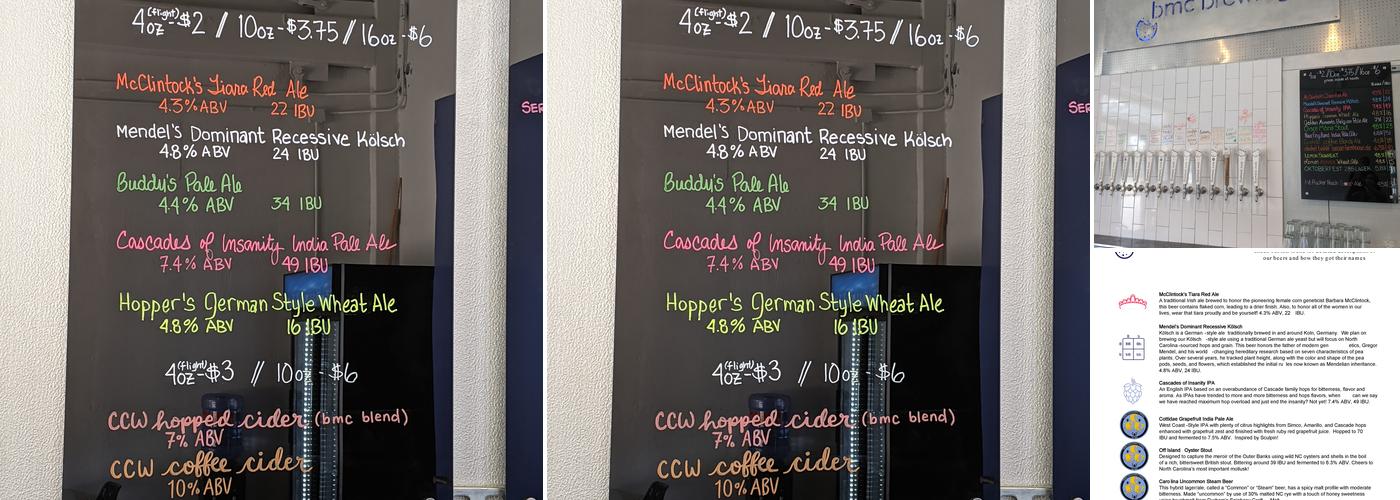 4oz (flight) - $2 // 10oz - $3.75 // 16oz - $6
McClintock's Tiara Red Ale
4.3% ABV 22 IBU
Mendel's Dominant Recessive Kölsch
4.8% ABV 24 IBU
Buddy's Pale Ale
4.4% ABV 34 IBU
Cascades of Insanity India Pale Ale
7.4% ABV 49 IBU
Hopper's German Style Wheat Ale
4.8% ABV 16 IBU
4oz (flight) - $3 // 10oz - $6
CCW hopped cider (bmc blend)
7% ABV
CCW coffee cider
10% ABV
SER
4oz (flight) - $2 // 10oz - $3.75 // 16oz - $6
McClintock's Tiara Red Ale
4.3% ABV 22 IBU
Mendel's Dominant Recessive Kölsch
4.8% ABV 24 IBU
Buddy's Pale Ale
4.4% ABV 34 IBU
Cascades of Insanity India Pale Ale
7.4% ABV 49 IBU
Hopper's German Style Wheat Ale
4.8% ABV 16 IBU
4oz (flight) - $3 // 10oz - $6
CCW hopped cider (bmc blend)
7% ABV
CCW coffee cider
10% ABV
SER
bmc brewing
Cascades of Insanity IPA
OKTOBERFEST
our beers and how they got their names
McClintock's Tiara Red Ale
A traditional Irish ale brewed to honor the pioneering female corn geneticist Barbara McClintock,
this beer contains flaked corn, leading to a drier finish. Also, to honor all of the women in our
lives, wear that tiara proudly and be yourself! 4.3% ABV, 22 IBU.
Mendel's Dominant Recessive Kölsch
Kölsch is a German -style ale traditionally brewed in and around Koln, Germany. We plan on
brewing our Kölsch -style ale using a traditional German ale yeast but will focus on North
Carolina -sourced hops and grain. This beer honors the father of modern gen etics, Gregor
Mendel, and his world -changing hereditary research based on seven characteristics of pea
plants. Over several years, he tracked plant height, along with the color and shape of the pea
pods, seeds, and flowers, which established the initial ru les now known as Mendelian inheritance.
4.8% ABV, 24 IBU.
Cascades of Insanity IPA
An English IPA based on an overabundance of Cascade family hops for bitterness, flavor and
aroma. As IPAs have trended to more and more bitterness and hops flavors, when can we say
we have reached maximum hop overload and just end the insanity? Not yet! 7.4% ABV, 49 IBU.
Cottidae Grapefruit India Pale Ale
West Coast -Style IPA with plenty of citrus highlights from Simco, Amarillo, and Cascade hops
enhanced with grapefruit zest and finished with fresh ruby red grapefruit juice. Hopped to 70
IBU and fermented to 7.5% ABV. Inspired by Sculpin!
Off Island Oyster Stout
Designed to capture the merroir of the Outer Banks using wild NC oysters and shells in the boil
of a rich, bittersweet British stout. Bittering around 39 IBU and fermented to 6.3% ABV. Cheers to
North Carolina's most important mollusk!
Carolina Uncommon Steam Beer
This hybrid lager/ale, called a "Common" or "Steam" beer, has a spicy malt profile with moderate
bitterness. Made "uncommon" by use of 30% malted NC rye with a touch of honey sweetness